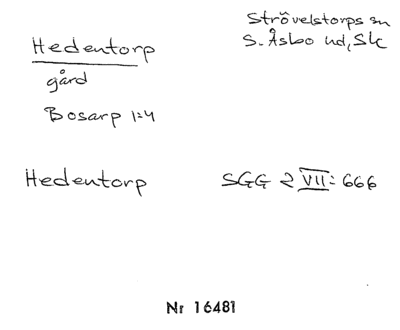 Hedentorp
gård
Bosarp 1:4
Strövelstorps sn
S. Åsbo hd, Sk
Hedentorp
SGG 2 VII: 666
Nr 16481